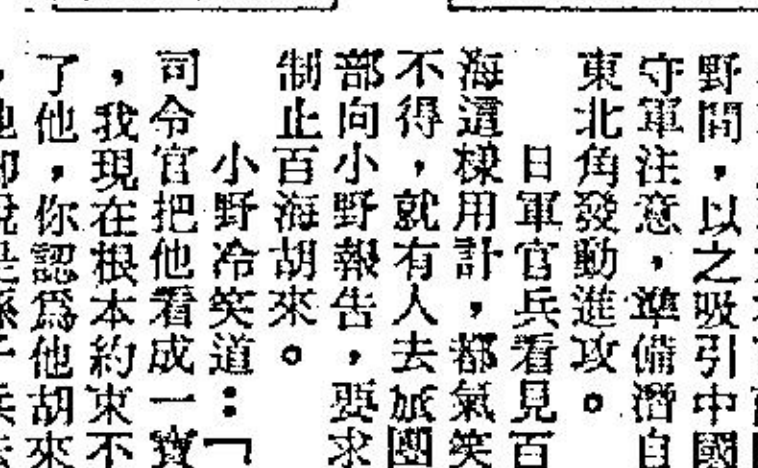 野間，以之吸引中國
守軍注意，準備潛自
東北角發動進攻。
日軍官兵看見百
海這樣用計，都氣笑
不得，就有人去旅團
部向小野報告，要求
制止百海胡來。
小野冷笑道：「
司令官把他看成一寶
，我現在根本約束不
了他，你認爲他胡來